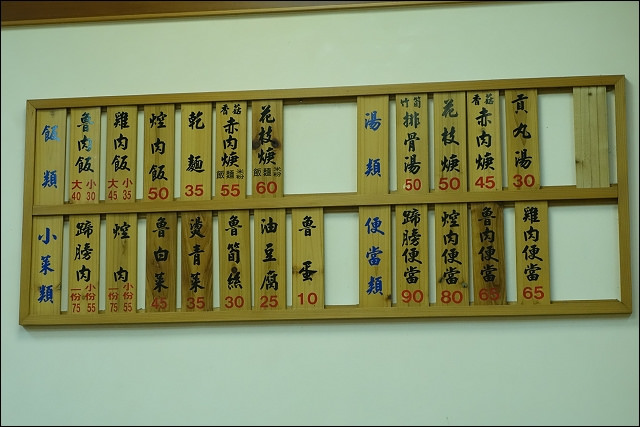 飯類
魯肉飯 大40 小30
雞肉飯 大45 小35
焢肉飯 50
乾麵 35
香菇赤肉焿 飯麵米粉 55
花枝焿 飯麵米粉 60
湯類
竹筍排骨湯 50
花枝焿 50
香菇赤肉焿 45
貢丸湯 30
小菜類
蹄膀肉 一份75 小份55
焢肉 一份75 小份55
魯白菜 45
燙青菜 35
魯筍絲 30
油豆腐 25
魯蛋 10
便當類
蹄膀便當 90
焢肉便當 80
魯肉便當 65
雞肉便當 65